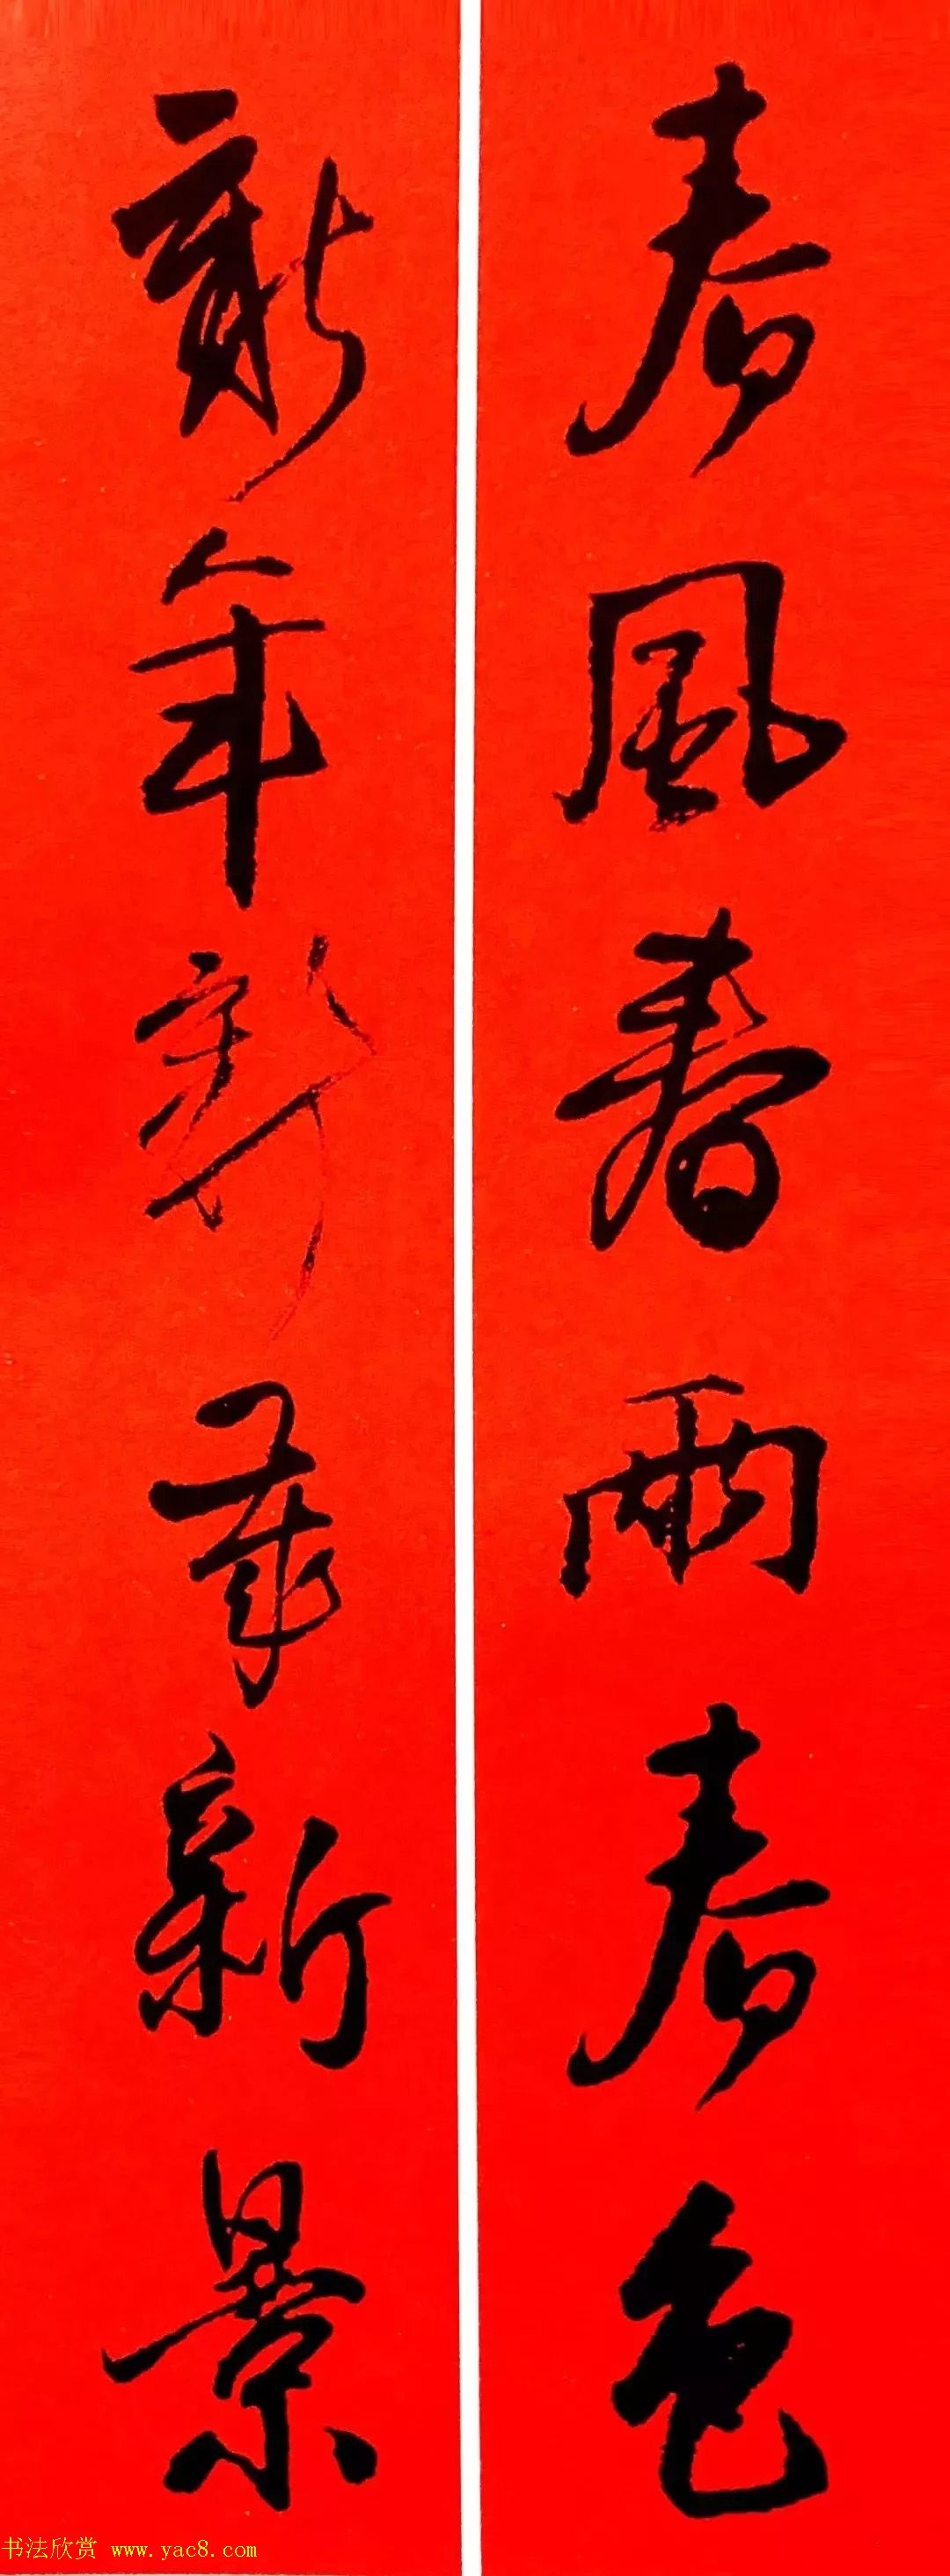 春風春雨春色
新年新歲新景
书法欣赏 www.yac8.com